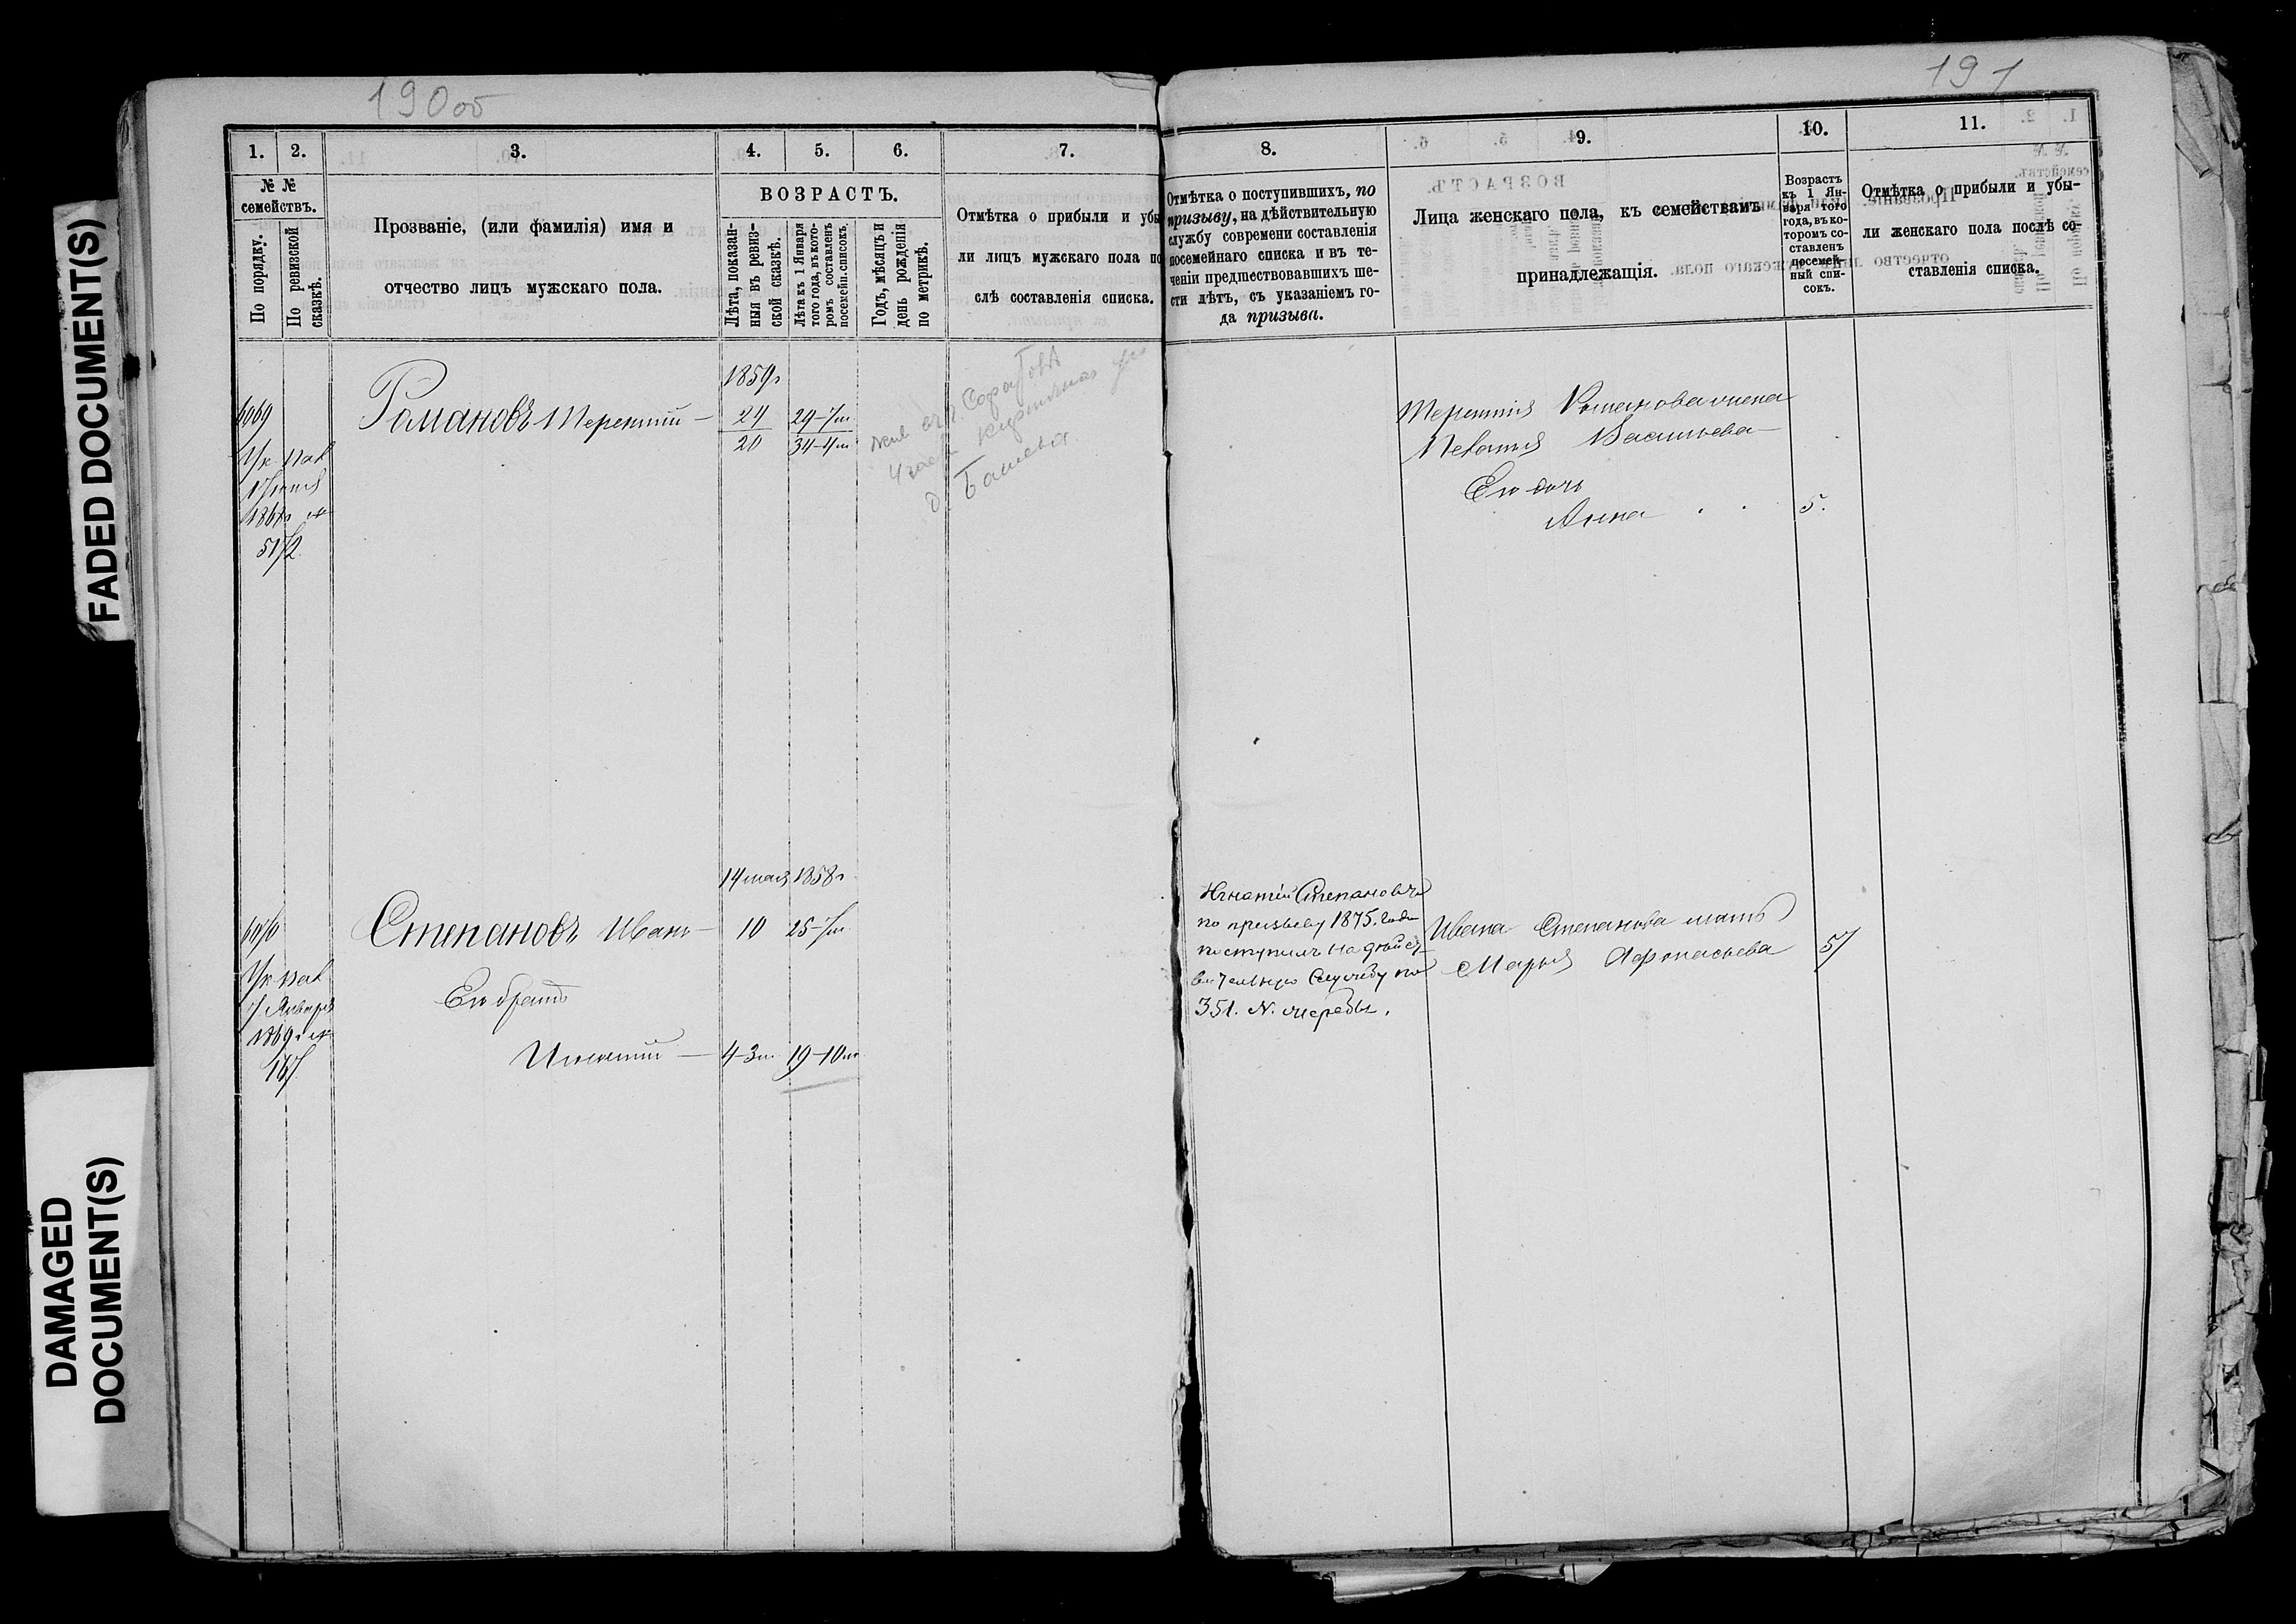 FADED DOCUMENT(S)
DAMAGED
DOCUMENT(S)
190об
1.
2.
3.
4.
5.
6.
7.
№ №
семействъ.
По порядку.
По ревизской
сказкѣ.
Прозваніе, (или фамилія) имя и
отчество лицъ мужскаго пола.
ВОЗРАСТЪ.
Лѣта, показан-
ныя въ ревиз-
ской сказкѣ.
Лѣта къ 1 Января
того года, въ кото-
ромъ составленъ
посемейн. списокъ.
Годъ, мѣсяцъ и
день рожденія
по метрикѣ.
Отмѣтка о прибыли и убы
ли лицъ мужскаго пола по
слѣ составленія списка.
1859г
6069
Романовъ Терентий
24
24-7м
20
34-4м
Ук Пал
1867г №
5172
14 мая 1858г
6070
Степановъ Иванъ
10
25-7м
Ук Пал
7 Января
1869г №
167
Его братъ
Игнатий
4-3м
19-10м
191
8.
9.
10.
11.
Отмѣтка о поступившихъ, по
призыву, на дѣйствительную
службу современи составленія
посемейнаго списка и въ те-
ченіи предшествовавшихъ ше-
сти лѣтъ, съ указаніемъ го-
да призыва.
Лица женскаго пола, къ семействамъ
принадлежащія.
Возрастъ
къ 1 Ян-
варя того
года, въ ко-
торомъ со-
ставленъ
посемей-
ный спи-
сокъ.
Отмѣтка о прибыли и убы-
ли женскаго пола послѣ со-
ставленія списка.
Терентия Романова жена
Васильева
Его дочь
Анна
5.
Игнатій Степановъ
по призыву 1875. года
поступилъ на дѣйст
вительную Службу по
351. №. очереди.
Ивана Степанова мать
Марья Афонасьева
57